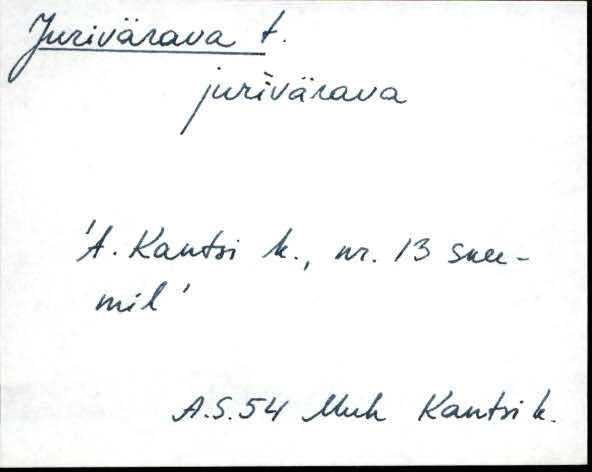 Jurivärava t.
juri̬värava
't. Kantsi k., nr. 13 suu-
mil'
A.S.54 Muh Kantsi k.